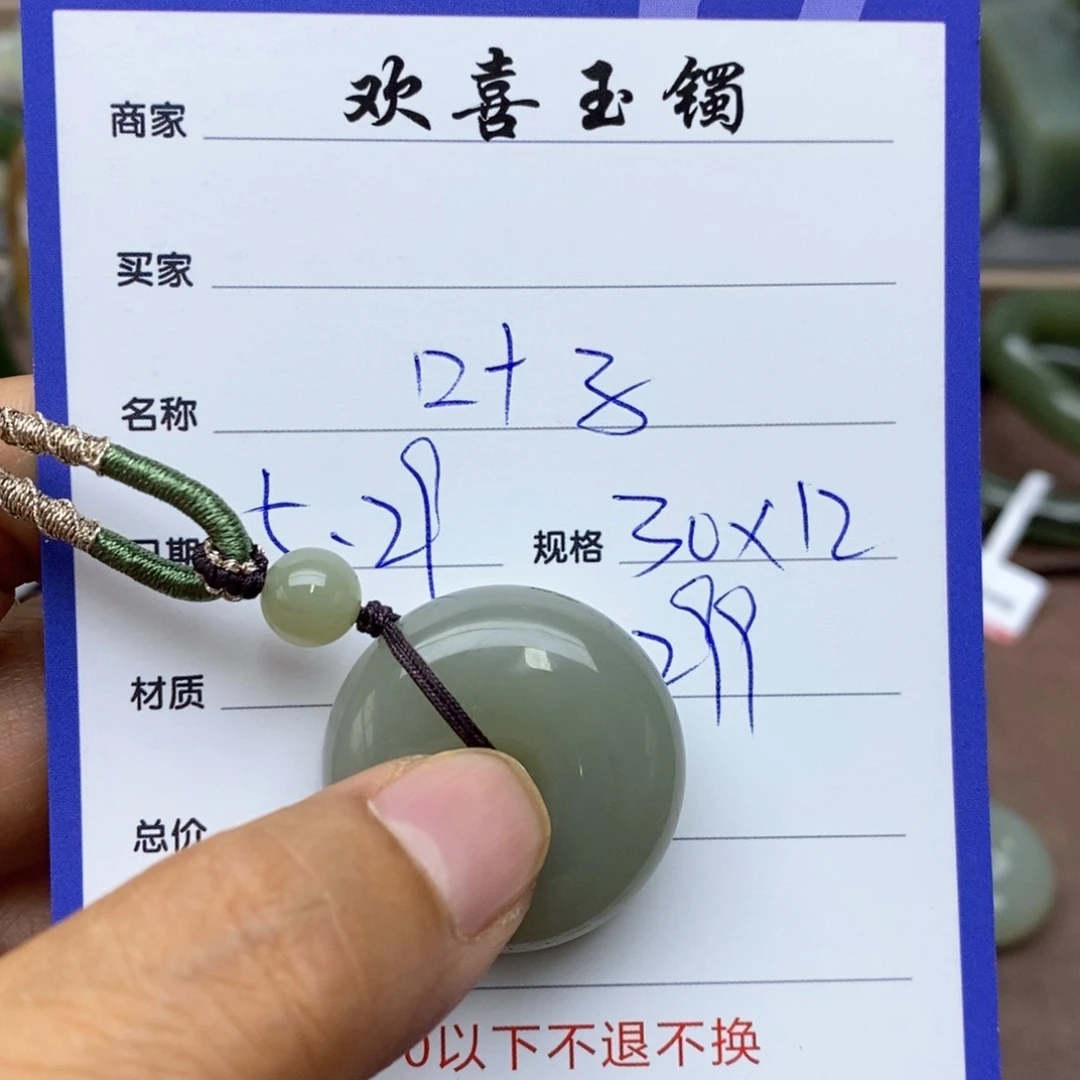 商家 欢喜玉镯
买家
名称
日期 5.29 规格 30x12
299
材质
总价
0以下不退不换